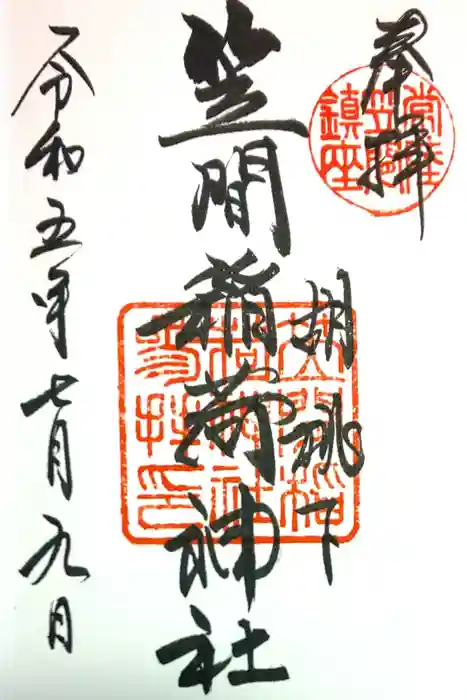 奉拝
胡桃下
笠間稲荷神社
令和五年七月九日
常陸
笠間
鎮座